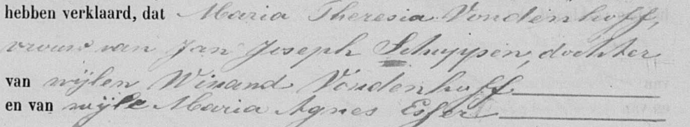 hebben verklaard, dat Maria Theresia Vondenhoff,
vrouw van Jan Joseph Schuppen, dochter
van wijlen Winand Vondenhoff
en van wijle Maria Agnes Esser